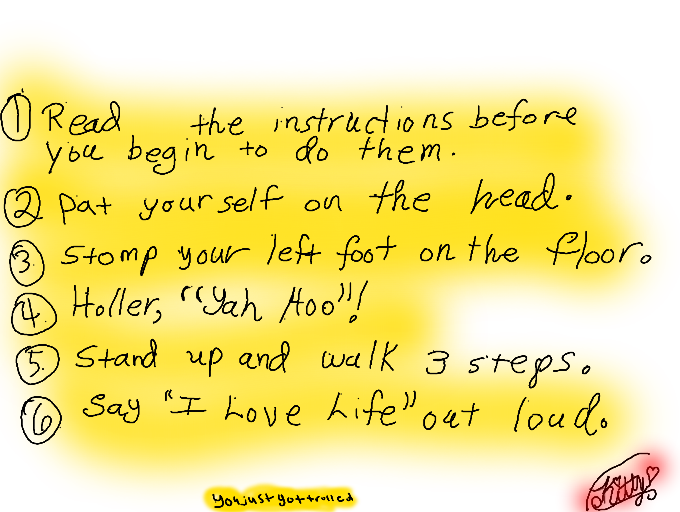 ① Read the instructions before
you begin to do them.
② Pat yourself on the head.
③ Stomp your left foot on the floor.
④ Holler, "Yah Hoo"!
⑤ Stand up and walk 3 steps.
⑥ Say "I Love Life" out loud.
You just got trolled
Kitty